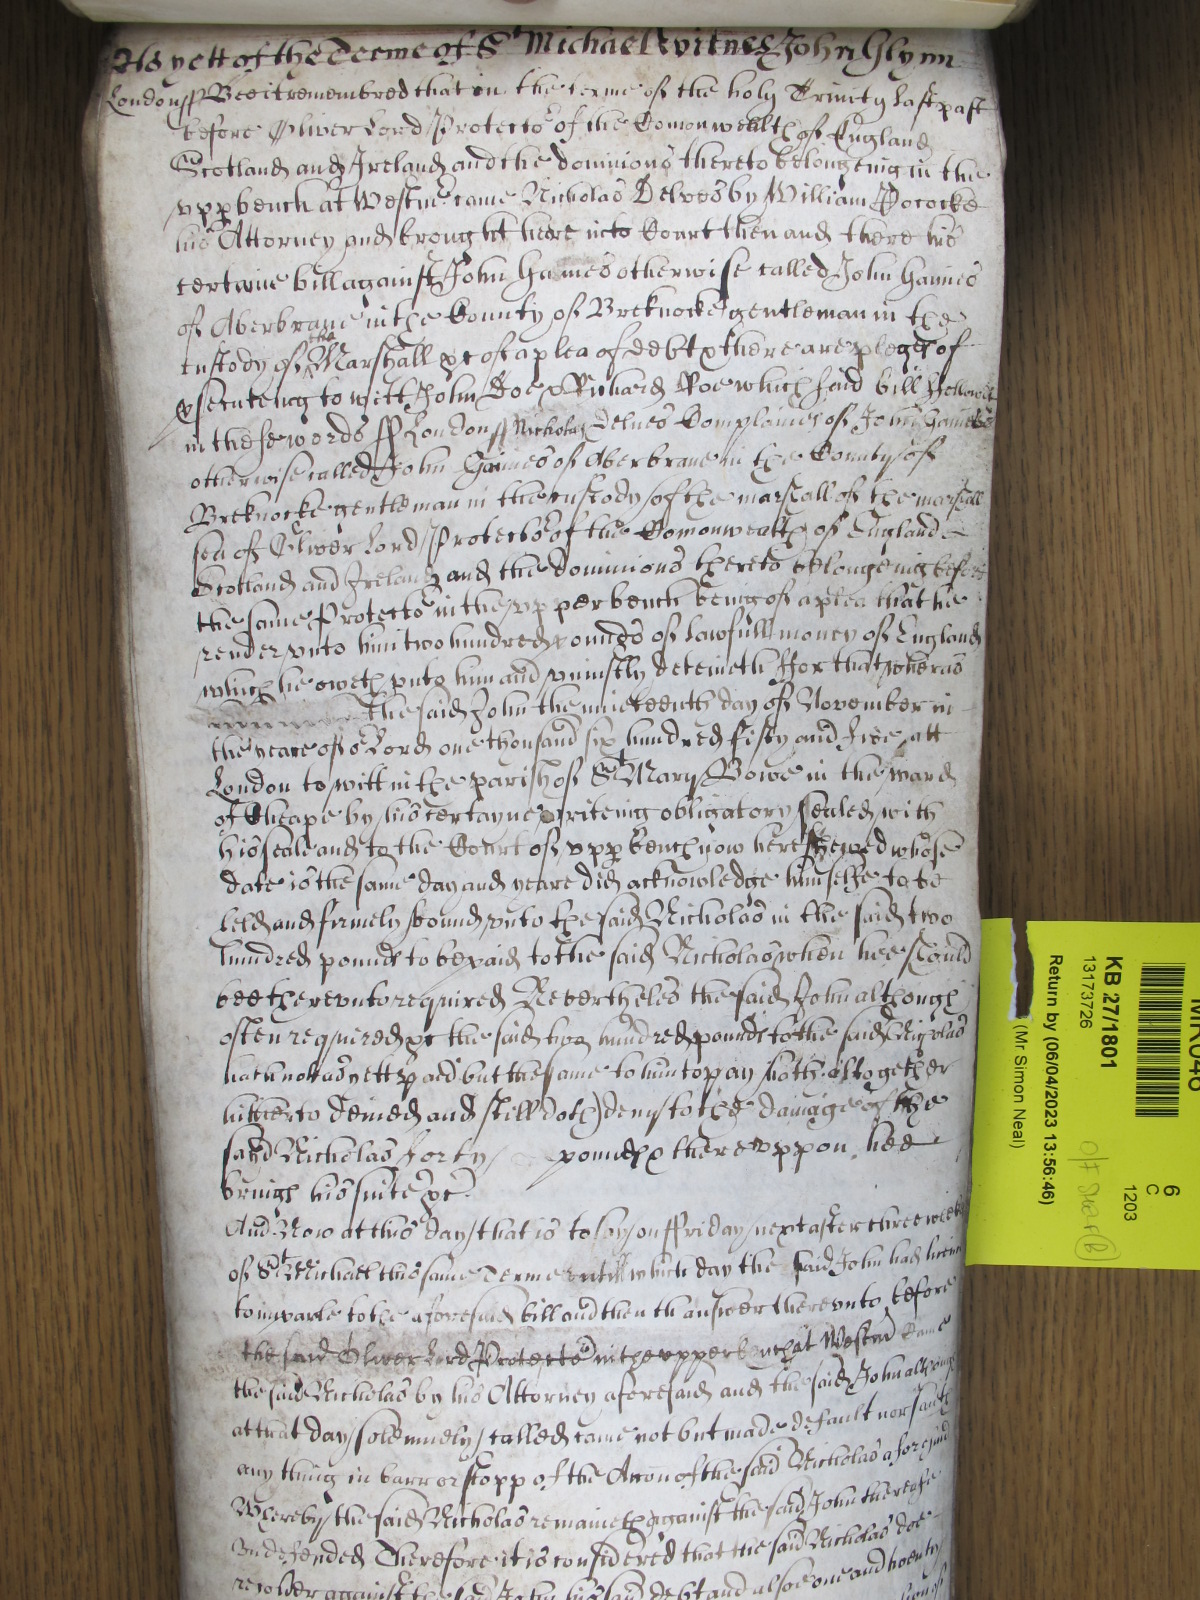 As yett of the Terme of St Michael Witnes John Glynn
London ss Bee it remembred that in the terme of the holy Trinity last past
before Oliver Lord Protector of the Comonwealth of England
Scotland and Ireland and the dominions thereto belongeing in the
upper bench at Westmr came Nicholas Delves by William Pococke
his Attorney and brought here into Court then and there his
certaine bill against John Games otherwise called John Games
of Aberbrane in the County of Brecknocke gentleman in the
custody of the Marshall &c of a plea of debt & there are pleges of
psecuteing to witt John Doe & Richard Roe which said bill followeth
in these words ss London ss Nicholas Delves Complaines of John Games
otherwise called John Games of Aberbrane in the County of
Brecknocke gentleman in the custody of the marshall of the marshall
sea of Oliver Lord Protector of the Comonwealth of England
Scotland and Ireland and the dominions thereto belongeing before
the same Protector in the upper bench being of a plea that he
render unto him two hundred pounds of lawfull money of England
which he oweth unto him and uniustly deteineth ffor that wheras
the said John the nineteenth day of November in
the yeare of or Lord one thousand six hundred fifty and five att
London to witt in the parish of St Mary Bowe in the ward
of Cheape by his certayne writeing obligatory sealed with
his seale and to the Court of upper bench now here shewed whose
date is the same day and yeare did acknowledge himselfe to be
held and firmely bound unto the said Nicholas in the said two
hundred pounds to be paid to the said Nicholas when hee should
bee thereunto required Nevertheles the said John although
often required &c the said two hundred pounds to the said Nicholas
hath not as yett paid but the same to him to pay hath altogether
hitherto denied and still doth deny to the damage of the
said Nicholas forty pounds & thereuppon hee
bringh his suite &c
And Now at this day that is to say on ffriday next after three weeks
of St Michael this same Terme untill which day the said John had licence
to imparle to the aforesaid bill and then th answer thereunto before
the said Oliver Lord Protector in the upper bench at Westmr Came
the said Nicholas by his Attorney aforesaid and the said John although
at that day solemnely called came not but made default nor saith
any thing in barr or stopp of the Accon of the said Nicholas aforesaid
Whereby the said Nicholas remaineth against the said John therefore
undefended Therefore it is considered that the said Nicholas doe
recover against the said John his said debt and alsoe one and twenty
MR046
6
C
1203
KB 27/1801
13173726
Return by (06/04/2023 13:56:46)
(Mr Simon Neal)